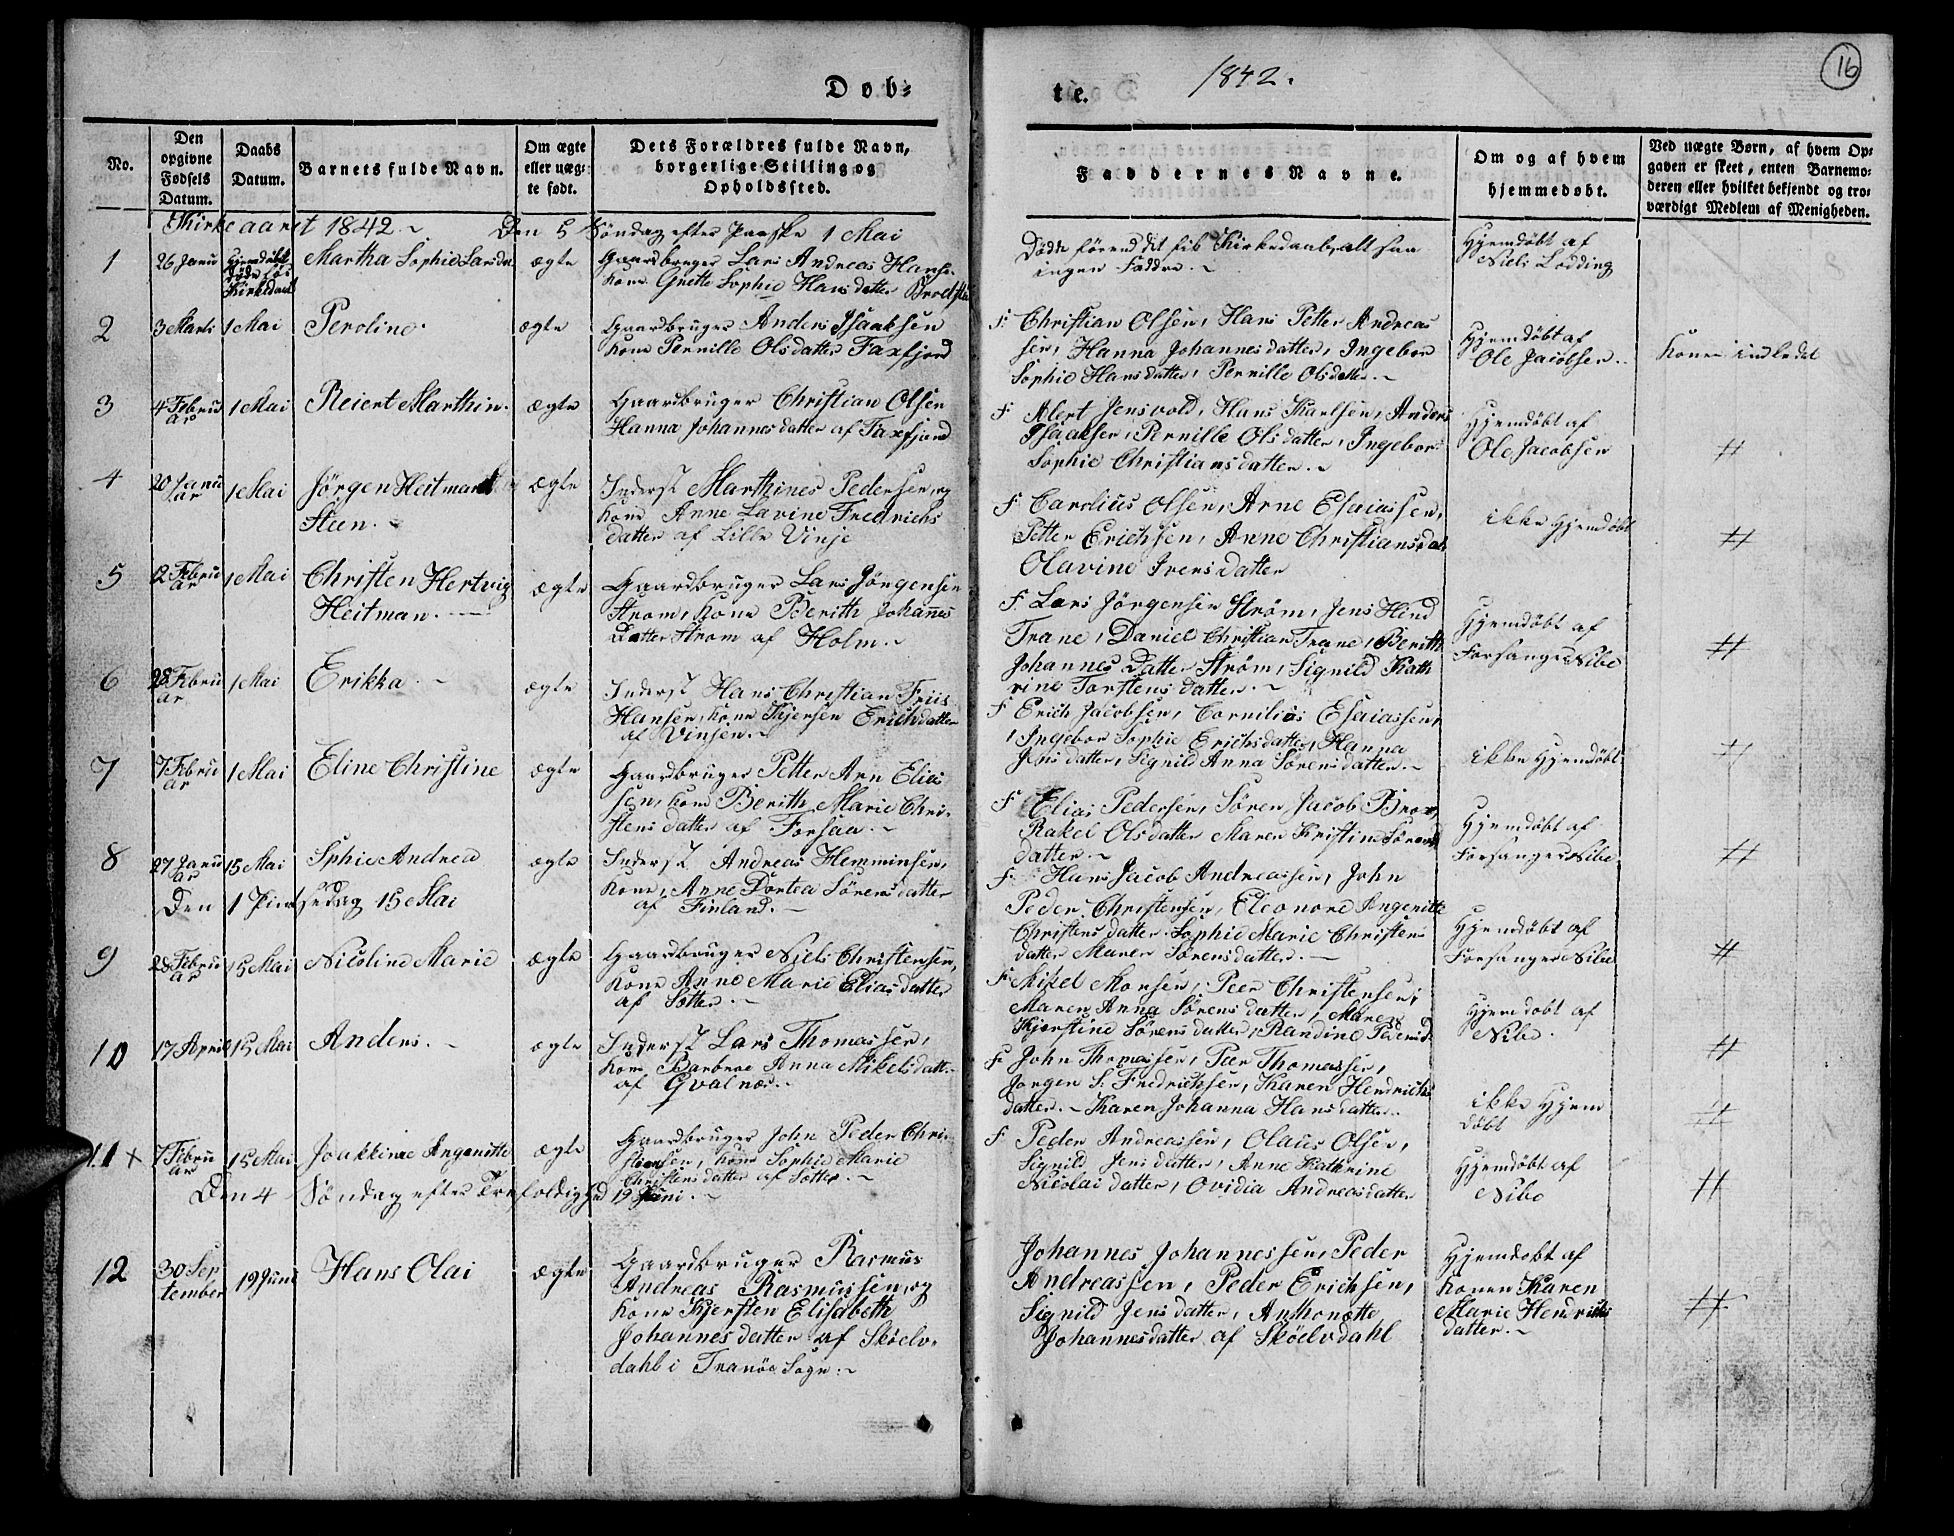 Døb-
te.
1842.
16
No.
Den opgivne Fødsels Datum.
Daabs Datum.
Barnets fulde Navn.
Om ægte eller uæg-te født.
Dets Forældres fulde Navn, borgerlige Stilling og Opholdssted.
Faddernes Navne.
Om og af hvem hjemmedøbt.
Ved uægte Børn, af hvem Op-gaven er skeet, enten Barnemo-deren eller hvilket bekjendt og tro-værdigt Medlem af Menigheden.
Kirkeaaret 1842.~ Den 5 Søndag efter Paaske 1 Mai
1
26 Janu
Hjemdøbt
døde før
Kirkedaab
Martha Sophie Larsdr
ægte
Gaardbruger Lars Andreas Hanse.
Kone Grette Sophie Hansdatter
Døde førend det fik Kirkedaab, altsaa
ingen Faddre.~
Hjemdøbt af
Niels Lodding
2
3 Marts
1 Mai
Peroline.
ægte
Gaardbruger Anders Isaaksen
Kone Pernille Olsdatter Faxfjord
F. Christian Olsen, Hans Petter Andreas
sen, Hanna Johannesdatter, Ingebor
Sophie Hansdatter, Pernille Olsdatter.~
Hjemdøbt af
Ole Jacobsen.
Konen indledet
3
4 Febru
ar
1 Mai
Reiert Marthin.
ægte
Gaardbruger Christian Olsen
Hanna Johannesdatter af Faxfjord
F Alert Jensvold, Hans Karlsen, Anders
Isaaksen, Pernille Olsdatter, Ingebor
Sophie Christiansdatter.~
Hjemdøbt af
Ole Jacobsen
#
4
20 Janu
ar
1 Mai
Jørgen Heitman
Steen.~
ægte
Inderst Marthines Pedersen, og
Kone Anne Lavine Fredrichs
datter af Lille Vinje
F Carolius Olsen, Arne Esaiassen,
Petter Erichsen, Anne Christiansdat
Olavine Irensdatter
ikke Hjemdøbt
#
5
2 Febru
ar
1 Mai
Christen Hertvig
Heitman.
ægte
Gaardbruger Lars Jørgensen
Strøm, Kone Berith Johannes
Datter Strøm af Holm.~
F Lars Jørgensen Strøm, Jens Hind
Trane, Daniel Christian Trane, Berith
Johannes Datter Strøm, Signild Kath
rine Torstensdatter.~
Hjemdøbt af
Forsanger Nibe
#
6
28 Febru
ar
1 Mai
Erikka.~
ægte
Inderst Hans Christian Friis
Hansen, Kone Kjersten Erichdatter
af Vinjen.~
F Erich Jacobsen, Cornilius Esaiassen,
Ingebor Sophie Erichsdatter, Hanna
Jensdatter, Signild Anna Sørensdatter.~
ikke Hjemdøbt
#
7
7 Febru
ar
1 Mai
Eline Christine
ægte
Gaardbruger Petter Arn Elias
sen, Kone Berith Marie Chri-
stensdatter af Forsaa.~
F Elias Pedersen, Søren Jacob Brox,
Rakel Olsdatter Maren Kristine Sørens
datter.~
Hjemdøbt af
Forsanger Nibe
#
8
27 Janu
ar
15 Mai
Sphie Andrea
ægte
Inderst Andreas Hemminsen,
Kone, Anne Dortea Sørensdatter
af Finland.~
F. Hans Jacob Andreassen, John
Peder Christensen, Eleonore Angenitte
Christensdatter. Sophie Marie Christen
datter Maren Sørensdatter.~
Hjemdøbt af
Forsanger Nibe
#
Den 1 Pintsedag 15 Mai
9
28 Febru
ar
15 Mai
Nicoline Marie
ægte
Gaardbruger Niels Christensen,
Kone Anne Marie Eliasdatter
af Søtter.~
F. Mikel Monsen, Peer Christensen,
Maren Anna Sørensdatter, Maren
Kjerstine Sørensdatter, Randine Pedersd.
Hjemdøbt af
Nibe.
#
10
17 April
15 Mai
Anders.~
ægte
Inderst Lars Thomassen,
Kone Barbroe Anna Mikelsdatt.
af Gvalnæs.
F. John Thomassen, Peer Thomassen,
Jørgen S. Fredrichsen, Karen Hendrichs
datter.~ Karen Johanna Hansdatter.
ikke Hjem
døbt
#
11 x
7 Febru
ar
15 Mai
Joakkime Angenitte
ægte
Gaardbruger John Peder Chri
stensen, Kone Sophie Marie
Christensdatter af Søtter.~
F. Peder Andreassen, Olaus Olsen,
Signild Jensdatter, Anne Kathrine
Nicolaidatter, Ovidia Andreasdatter
Hjemdøbt af
Nibe
#
Den 4 Søndag efter Trefoldighed 19 Juni.~
12
30 Sep
tember
19 Juni
Hans Olai
ægte
Gaardbruger Rasmus
Andreas Rasmussen, og
Kone Kjersten Elisabeth
Johannesdatter af Skøelv-
dahl i Tranøe Sogn.~
Johannes Johannessen, Peder
Andreassen, Peder Erichsen,
Signild Jensdatter, Anthonætte
Johannesdatter af Skøelvdahl
Hjemdøbt af
Konen Karen
Marie Hendrichs
datter.~
#